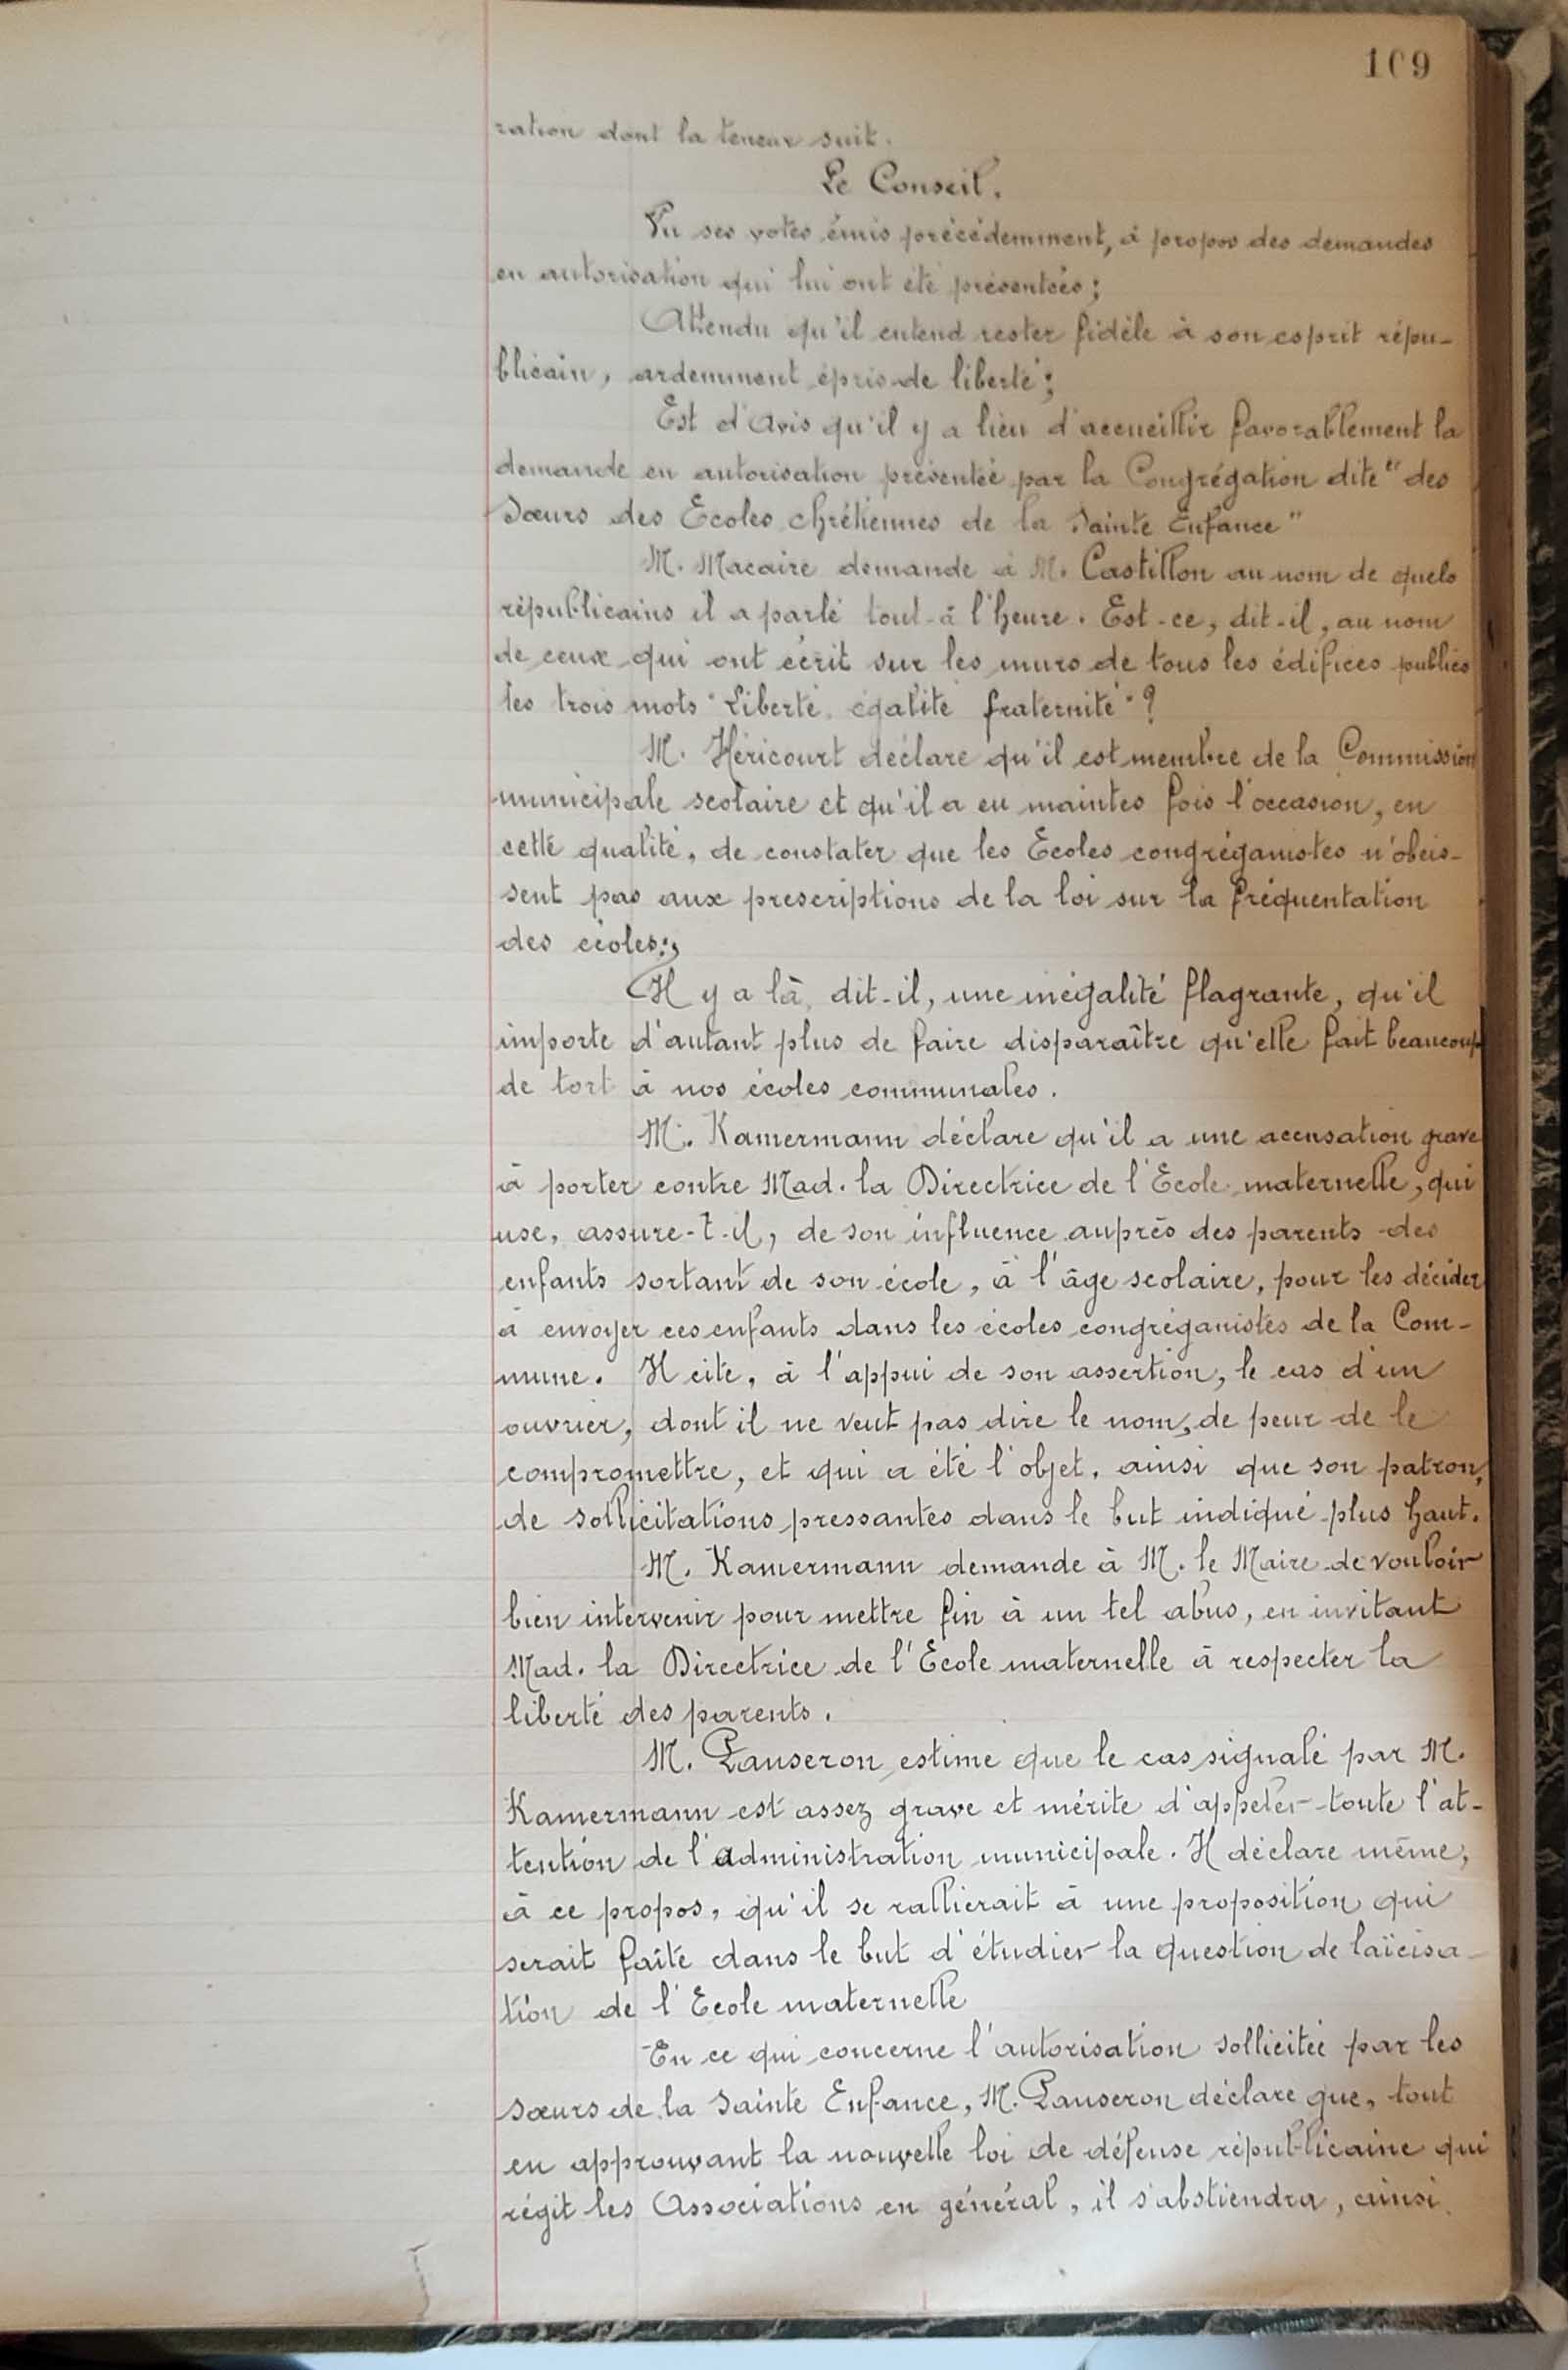 109
ration dont la teneur suit.
Le Conseil.
Vu ses votes émis précédemment, à propos des demandes
en autorisation qui lui ont été présentées ;
Attendu qu'il entend rester fidèle à son esprit répu-
blicain, ardemment épris de liberté ;
Est d'Avis qu'il y a lieu d'accueillir favorablement la
demande en autorisation présentée par la Congrégation dite "des
Sœurs des Ecoles chrétiennes de la Sainte Enfance"
M. Macaire demande à M. Castillon au nom de quels
républicains il a parlé tout-à l'heure. Est-ce, dit-il, au nom
de ceux qui ont écrit sur les murs de tous les édifices publics
les trois mots "Liberté, égalité fraternité" ?
M. Héricourt déclare qu'il est membre de la Commission
municipale scolaire et qu'il a eu maintes fois l'occasion, en
cette qualité, de constater que les Ecoles congréganistes n'obéis-
sent pas aux prescriptions de la loi sur la fréquentation
des écoles ;
Il y a là, dit-il, une inégalité flagrante, qu'il
importe d'autant plus de faire disparaître qu'elle fait beaucoup
de tort à nos écoles communales.
M. Kamermann déclare qu'il a une accusation grave
à porter contre Mad. la Directrice de l'Ecole maternelle, qui
use, assure-t-il, de son influence auprès des parents des
enfants sortant de son école, à l'âge scolaire, pour les décider
à envoyer ces enfants dans les écoles congréganistes de la Com-
mune. Il cite, à l'appui de son assertion, le cas d'un
ouvrier, dont il ne veut pas dire le nom, de peur de le
compromettre, et qui a été l'objet, ainsi que son patron,
de sollicitations pressantes dans le but indiqué plus haut.
M. Kamermann demande à M. le Maire de vouloir
bien intervenir pour mettre fin à un tel abus, en invitant
Mad. la Directrice de l'Ecole maternelle à respecter la
liberté des parents.
M. Panseron estime que le cas signalé par M.
Kamermann est assez grave et mérite d'appeler toute l'at-
tention de l'administration municipale. Il déclare même,
à ce propos, qu'il se rallierait à une proposition qui
serait faîte dans le but d'étudier la question de laïcisa-
tion de l'Ecole maternelle
En ce qui concerne l'autorisation sollicitée par les
sœurs de la Sainte Enfance, M. Panseron déclare que, tout
en approuvant la nouvelle loi de défense républicaine qui
régit les Associations en général, il s'abstiendra, ainsi